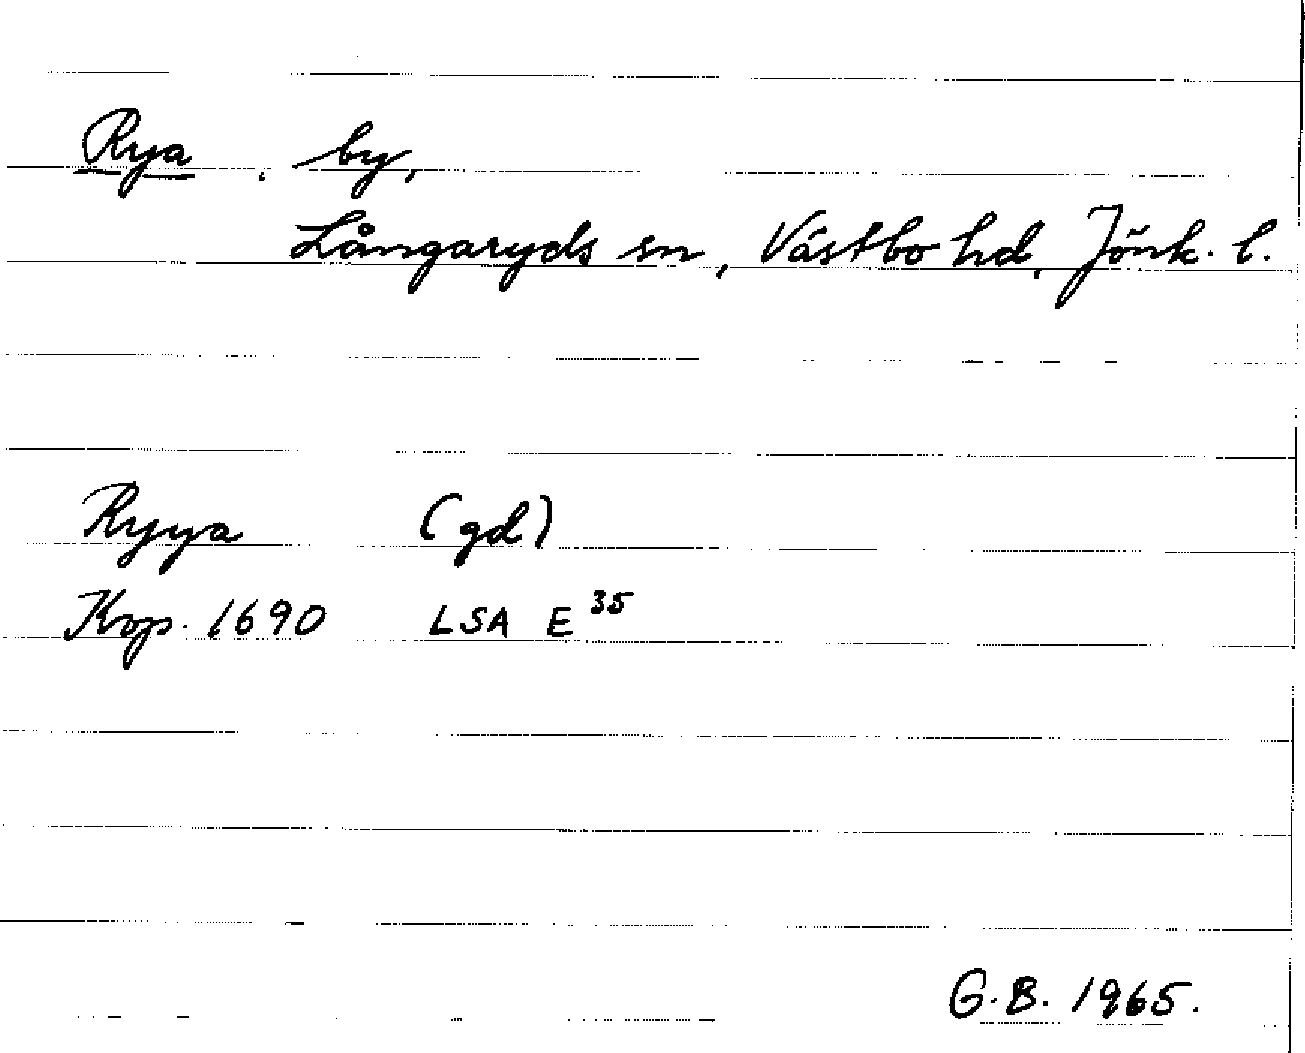 Rya, by,
Långaryds sn, Västbo hd, Jönk. l.
Ryya (gd)
Kop. 1690 LSA E 35
G.B. 1965.